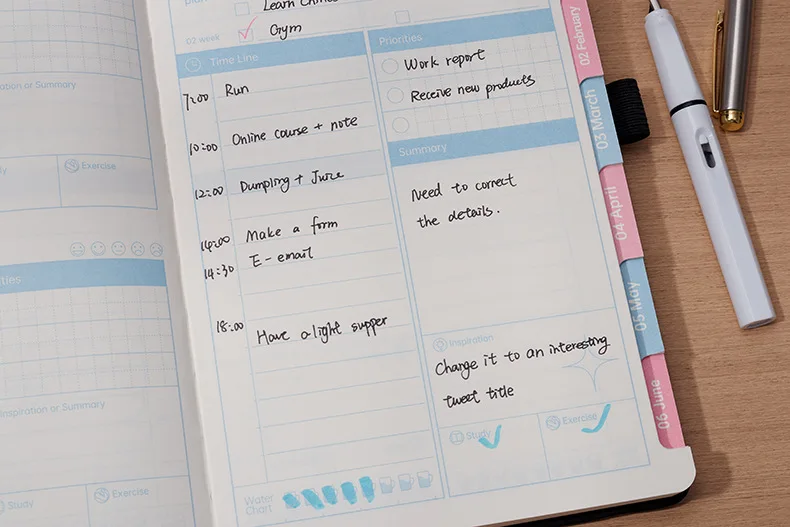 Learn
02 week
Gym
Time Line
7:00 Run
10:00 Online course + note
12:00 Dumpling + Juice
14:00 Make a form
14:30 E-email
18:00 Have a light supper
Water
Chart
Priorities
Work report
Receive new products
Summary
Need to correct
the details.
Inspiration
Change it to an interesting
tweet title
Study
Exercise
02 February
03 March
04 April
05 May
06 June
or Summary
Exercise
Inspiration or Summary
Study
Exercise